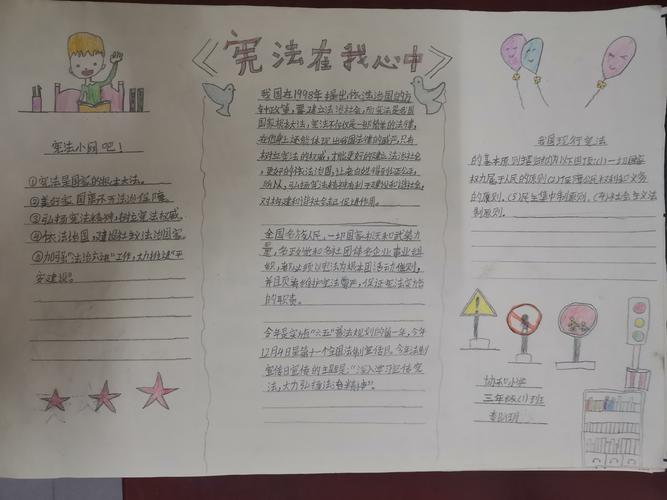 《宪法在我心中》
宪法小网吧!
①宪法是国家的根本大法。
②美好家国离不开法治保障。
③弘扬宪法精神,树立宪法权威。
④依法治国,建设社会主义法治国家。
⑤加强"法治六进"工作,大力推进"平
安建设"。
我国在1998年提出,依法治国的方
针政策,要建立法治社会,而宪法是我国
国家根本大法,宪法不仅仅是一部简单的法律,
在他身上还能体现出我国法律的威严,只有
树立宪法的权威,才能更好的建立法治社会,
更好的依法治国,
所以,弘扬宪法精神有利于建设和谐社会,
对构建和谐社会起促进作用。
全国各族人民,一切国家机关和武装力
量,各政党和各社团体各企业事业组
织,都必须以宪法为根本活动准则,
并且负有维护宪法尊严,保证宪法实施
的职责。
今年是实施"六五"普法规划的第一年,今年
12月4日是第十一个全国法制宣传日,今年法制
宣传日宣传的主题是:"深入学习宣传宪
法,大力弘扬法治精神"。
我国现行宪法
的基本原则主要有以下四项:(1)一切国家
权力属于人民的原则(2)保障公民权利和义务
的原则,(3)民主集中制原则,(4)社会主义法
制原则。
协和小学
三年级(1)班